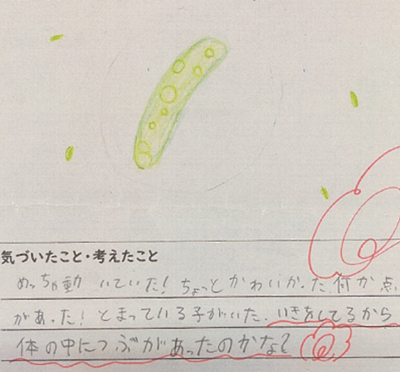 気づいたこと・考えたこと
めっちゃ動いていた!ちょっとかわいかった。何か点
があった!とまっている子がいた。いきをしてるから
体の中につぶがあったのかな?